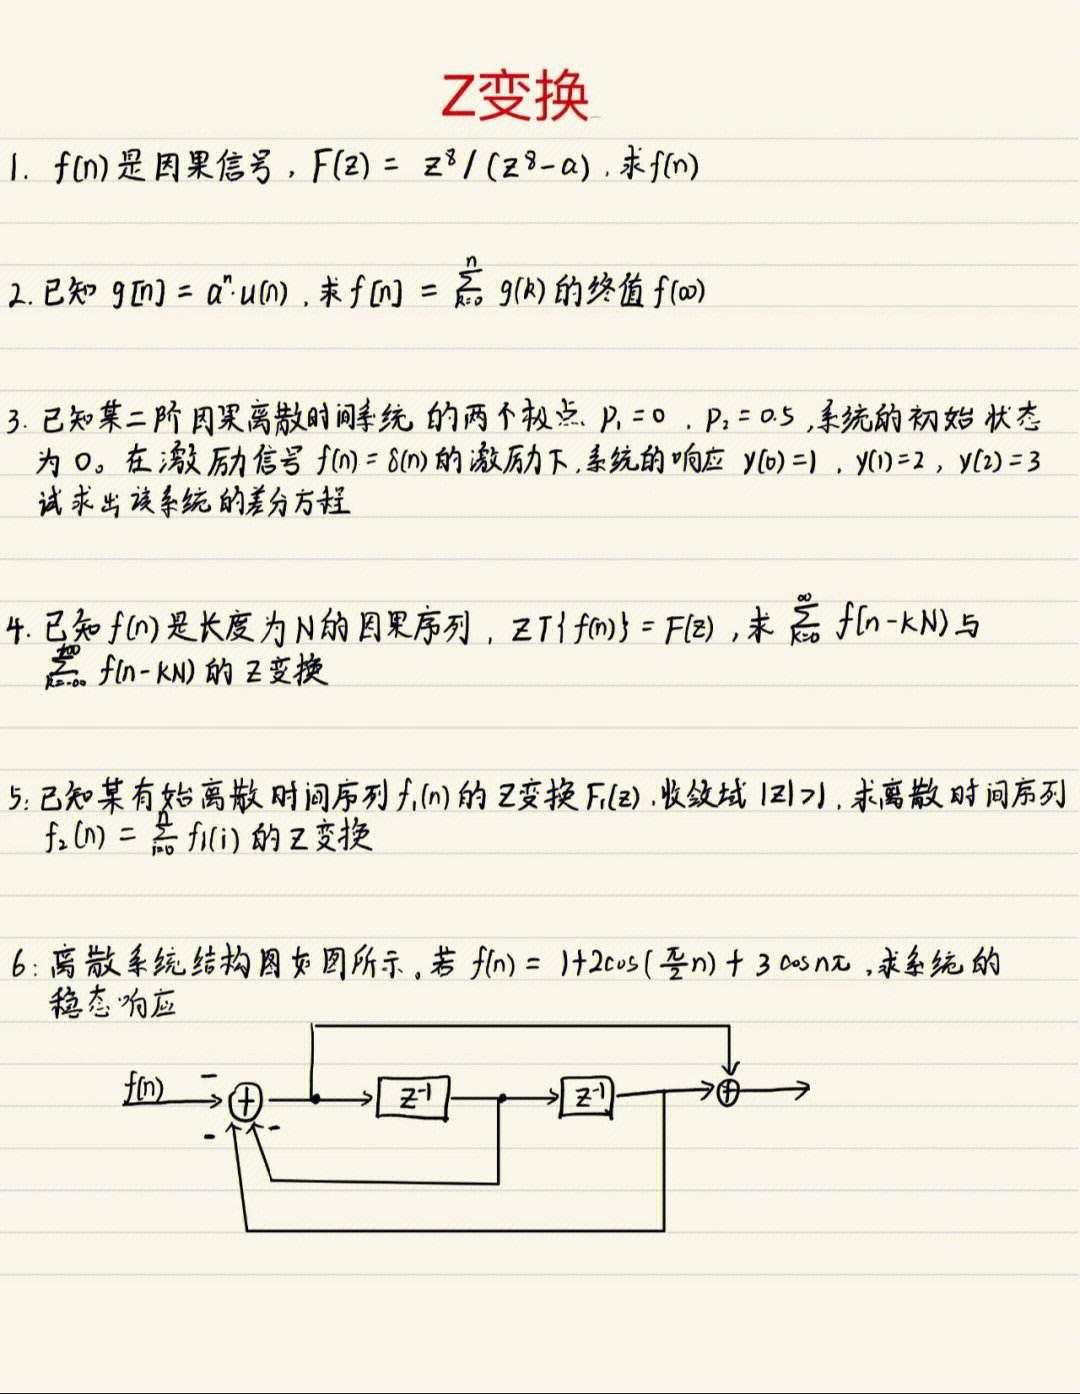 Z变换
1. f(n)是因果信号, F(z) = z⁸/(z⁸-a), 求f(n)
2. 已知 g[n] = aⁿ·u(n), 求 f[n] = ∑ₖ₌₀ⁿ g(k) 的终值 f(∞)
3. 已知某二阶因果离散时间系统 的两个极点 P₁=0, P₂=0.5, 系统的初始状态
为0。在激励信号 f(n)=δ(n)的激励下,系统的响应 y(0)=1, y(1)=2, y(2)=3
试求出该系统的差分方程
4. 已知f(n)是长度为N的因果序列, ZT{f(n)}=F(z), 求 ∑ₖ₌₀^∞ f(n-kN)与
∑ₖ₌₋∞^+∞ f(n-kN) 的 Z变换
5: 已知某有始离散时间序列 f₁(n)的Z变换F₁(z), 收敛域 |z|>1, 求离散时间序列
f₂(n) = ∑ᵢ₌₀ⁿ f₁(i) 的Z变换
6: 离散系统结构图如图所示, 若 f(n) = 1+2cos(π/2 n) + 3cosnπ, 求系统的
稳态响应
f(n) - + z⁻¹ z⁻¹ +
- -